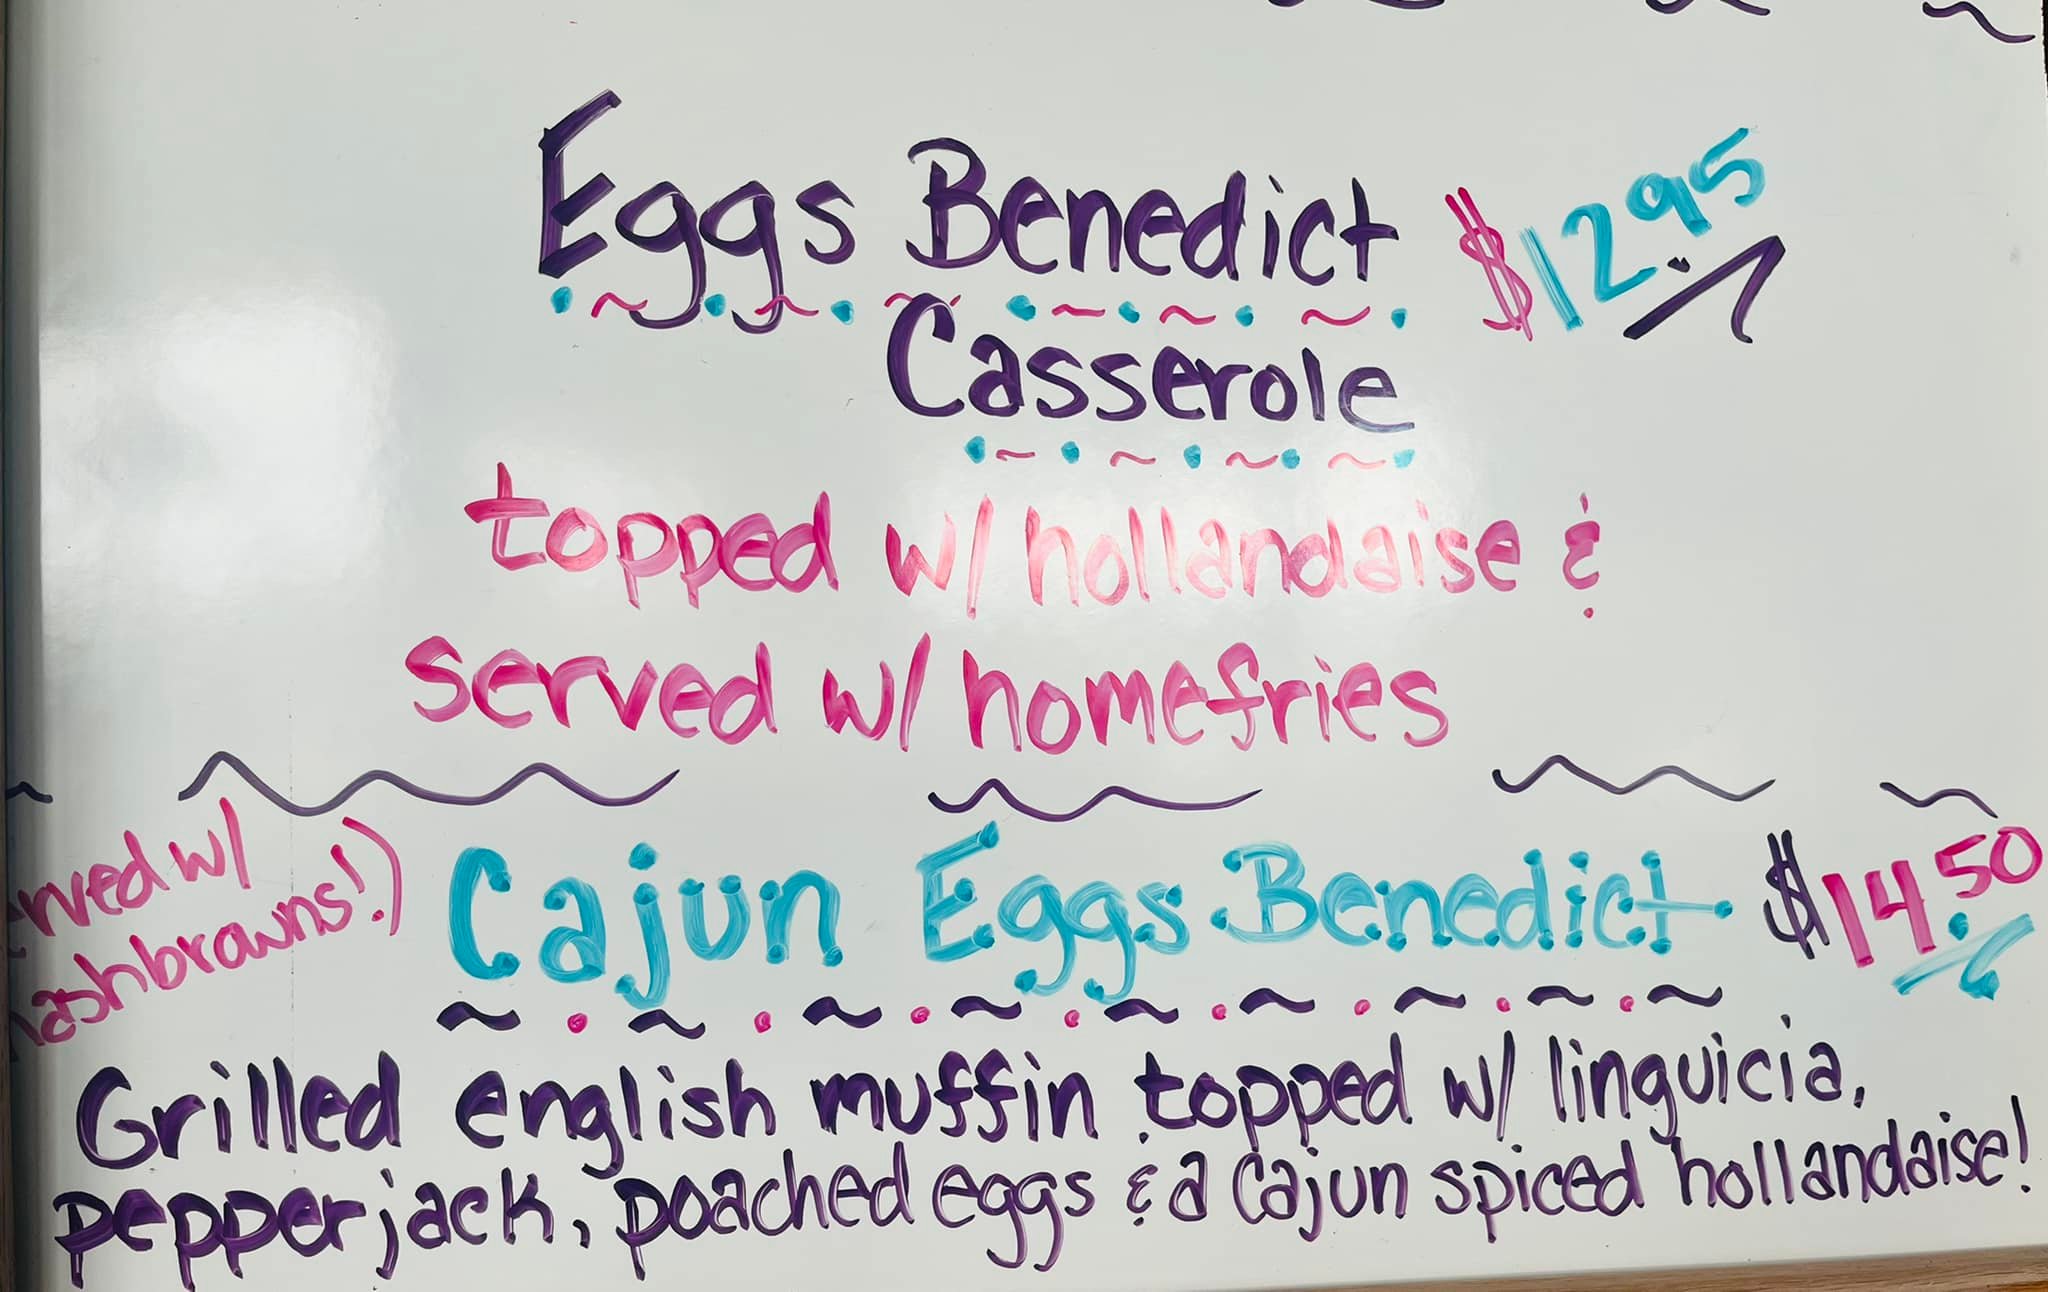 Eggs Benedict $12.95
Casserole
topped w/ hollandaise &
served w/ homefries
rved w/
hashbrowns!)
Cajun Eggs Benedict $14.50
Grilled english muffin topped w/ linguicia,
pepperjack, poached eggs & a Cajun spiced hollandaise!